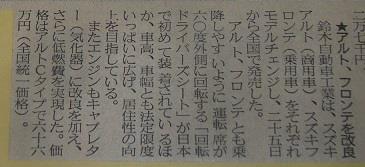 二万七千円
★アルト、フロンテを改良
鈴木自動車工業は、スズキ
アルト(商用車)、スズキフ
ロンテ(乗用車)をそれぞれ
モデルチェンジし、二十五日
から全国で発売した。
アルト、フロンテとも乗
降しやすいように運転席が
六〇度外側に回転する「回転
ドライバーズシート」が日本
で初めて装着されているほ
か、車高、車幅とも法定限度
いっぱいに広げ、居住性の向
上を目指している。
またエンジンもキャブレタ
ー(気化器)に改良を加え、
さらに低燃費を実現した。価
格はアルトCタイプで六十六
万円(全国統一価格)。